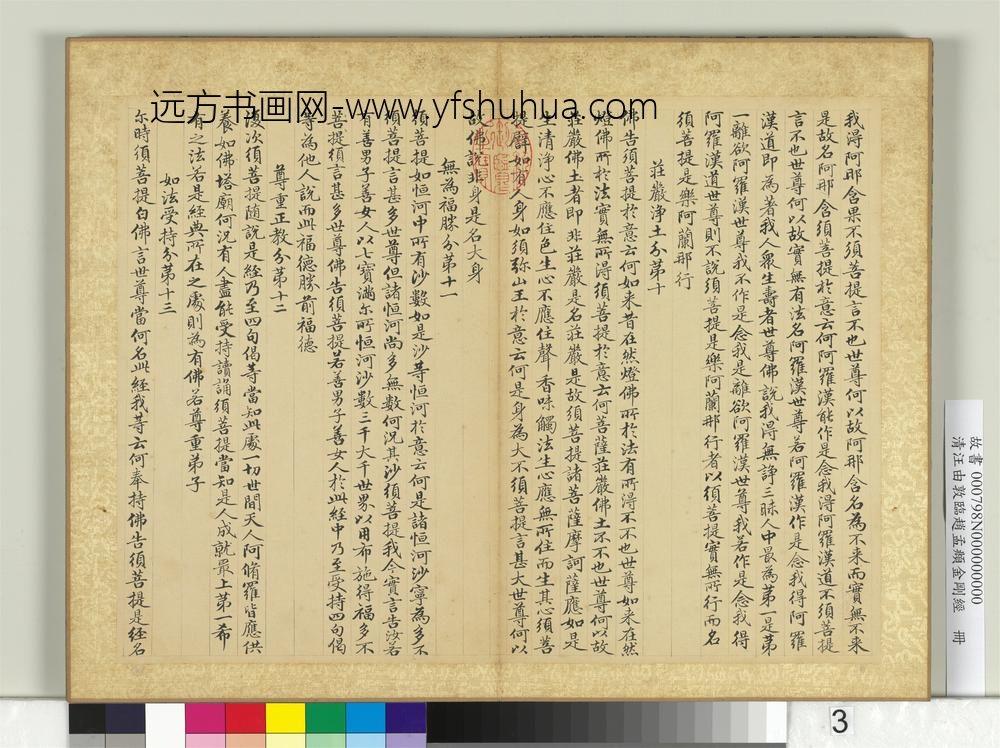 远方书画网-www.yfshuhua.com
我得阿那含果不須菩提言不也世尊何以故阿那含名為不來而實無不來
是故名阿那含須菩提於意云何阿羅漢能作是念我得阿羅漢道不須菩提
言不也世尊何以故實無有法名阿羅漢世尊若阿羅漢作是念我得阿羅
漢道即為著我人眾生壽者世尊佛說我得無諍三昧人中最為第一是第
一離欲阿羅漢世尊我不作是念我是離欲阿羅漢世尊我若作是念我得
阿羅漢道世尊則不說須菩提是樂阿蘭那行者以須菩提實無所行而名
須菩提是樂阿蘭那行
莊嚴淨土分第十
佛告須菩提於意云何如来昔在然燈佛所於法有所得不不也世尊如来在然
燈佛所於法實無所得須菩提於意云何菩薩莊嚴佛土不不也世尊何以故
莊嚴佛土者即非莊嚴是名莊嚴是故須菩提諸菩薩摩訶薩應如是
生清淨心不應住色生心不應住聲香味觸法生心應無所住而生其心須菩
提譬如有人身如須弥山王於意云何是身為大不須菩提言甚大世尊何以
故佛說非身是名大身
無為福勝分第十一
須菩提如恒河中所有沙數如是沙等恒河於意云何是諸恒河沙寧為多不
須菩提言甚多世尊但諸恒河尚多無數何況其沙須菩提我今實言告汝若
有善男子善女人以七寶滿尔所恒河沙數三千大千世界以用布施得福多不
須菩提言甚多世尊佛告須菩提若善男子善女人於此經中乃至受持四句偈
等為他人說而此福德勝前福德
尊重正教分第十二
復次須菩提隨說是經乃至四句偈等當知此處一切世間天人阿脩羅皆應供
養如佛塔廟何況有人盡能受持讀誦須菩提當知是人成就最上第一希
有之法若是經典所在之處則為有佛若尊重弟子
如法受持分第十三
尔時須菩提白佛言世尊當何名此經我等云何奉持佛告須菩提是經名
故書 000798N000000000
清汪由敦臨趙孟頫金剛經 冊
3